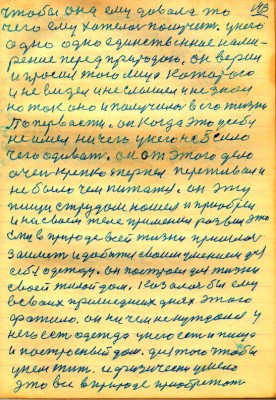 чтобы она ему давала то
чего ему хотелось получит. у него
одно одно единственное наме-
рение перед природою. он верил
и просил того лица которого
и не видел и не слышил и не знал
но так оно и получилось в его жизни
По первости. он когда это учебу
не имел ничего у него не было
чего одеват. он от этого дело
очен крепко терпел переживал и
не было чем питатся. он эту
пищу с трудом нашел и приобрел
и на своем теле применил развил это
ему в природе всей жизни пришлось
заимет и добится своим умением для
себя одежду. он построел для жизни
своей жилой дом. казалос бы ему
во своих пришедших днях этого
фатило. он ни чем не нуждался у
него ест одежда у него ест и пища
и построеный дом. для того чтобы
у нем жит. и физически умело
это все в природе приобретат